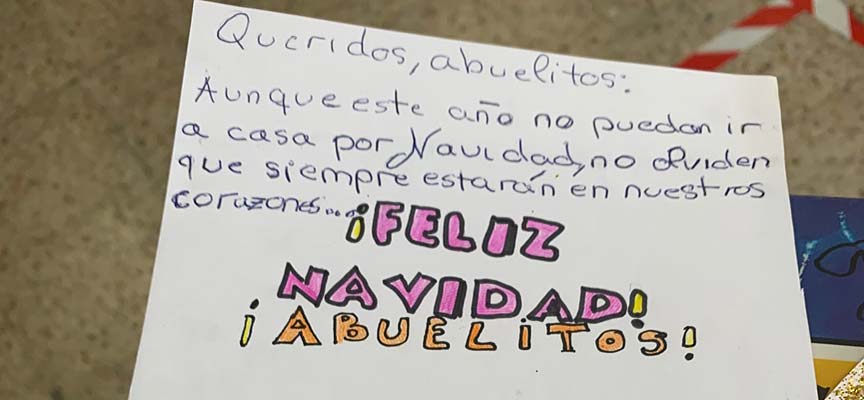 Queridos, abuelitos:
Aunque este año no puedan ir
a casa por Navidad, no olviden
que siempre estarán en nuestros
corazones...
¡FELIZ
NAVIDAD!
¡ABUELITOS!